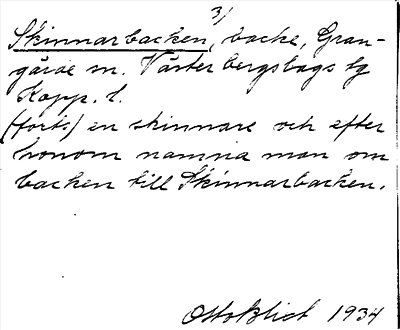 3)
Skinnarbacken, backe, Gran-
gärde sn. Västerbergslags tg
Kopp. l.
(forts) en skinnare och efter
honom namna man om
backen till Skinnarbacken.
Otto Blixt 1934